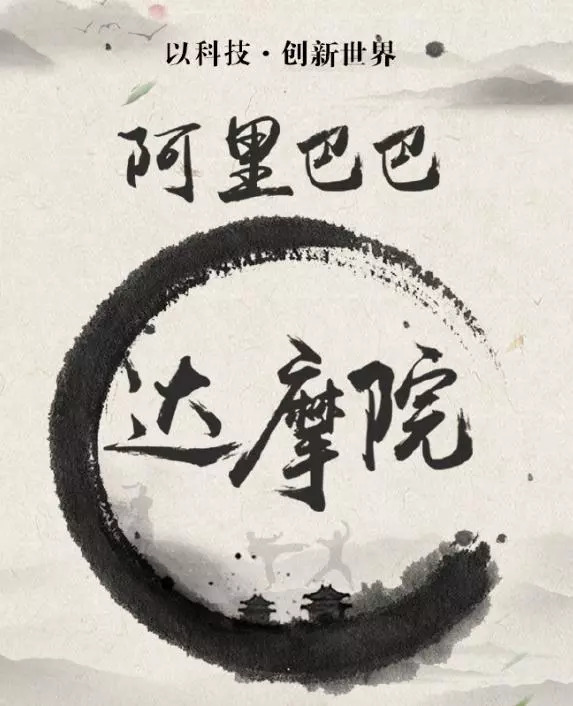 以科技·创新世界
阿里巴巴
达摩院